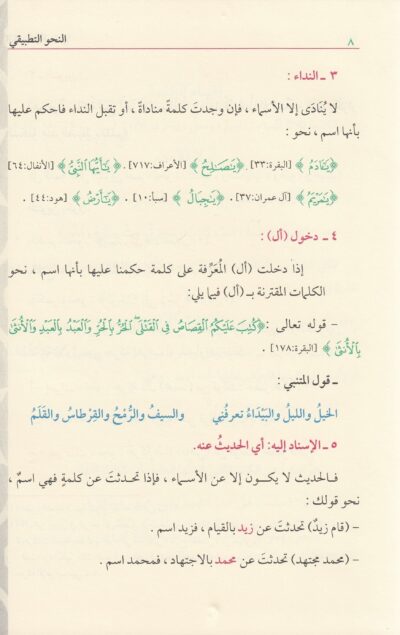 ٨ النحو التطبيقي
٣ ـ النداء :
لا يُنَادَى إلا الأسماء ، فإن وجدتَ كلمةً مناداةً ، أو تقبل النداء فاحكم عليها
بأنها اسم ، نحو :
﴿ يَـَٰٓـَٔادَمُ ﴾ [البقرة:٣٣] . ﴿ يَـٰصَـٰلِحُ ﴾ [الأعراف:٧١٧] . ﴿ يَـٰٓأَيُّهَا ٱلنَّبِيُّ ﴾ [الأنفال:٦٤]
﴿ يَـٰمَرْيَمُ ﴾ [آل عمران:٣٧] . ﴿ يَـٰجِبَالُ ﴾ [سبأ:١٠] . ﴿ يَـٰٓأَرْضُ ﴾ [هود:٤٤] .
٤ ـ دخول (أل) :
إذا دخلت (أل) المُعَرِّفة على كلمة حكمنا عليها بأنها اسم ، نحو
الكلمات المقترنة بـ (أل) فيما يلي:
- قوله تعالى :﴿كُتِبَ عَلَيْكُمُ ٱلْقِصَاصُ فِي ٱلْقَتْلَى ٱلْحُرُّ بِٱلْحُرِّ وَٱلْعَبْدُ بِٱلْعَبْدِ وَٱلْأُنثَىٰ
بِٱلْأُنثَىٰ﴾ [البقرة:١٧٨] .
ـ قول المتنبي :
الخيلُ والليلُ والبَيْدَاءُ تعرفُني والسيفُ والرُّمْحُ والقِرْطاسُ والقَلَمُ
٥ ـ الإسناد إليه: أي الحديثُ عنه.
فـالحديث لا يكـون إلا عن الأسمـاء ، فإذا تحدثتَ عن كلمةٍ فهي اسمٌ ،
نحو قولك :
- (قام زيدٌ) تحدثتَ عن زيد بالقيام ، فزيد اسم .
- (محمد مجتهد) تحدثتَ عن محمد بالاجتهاد ، فمحمد اسم .